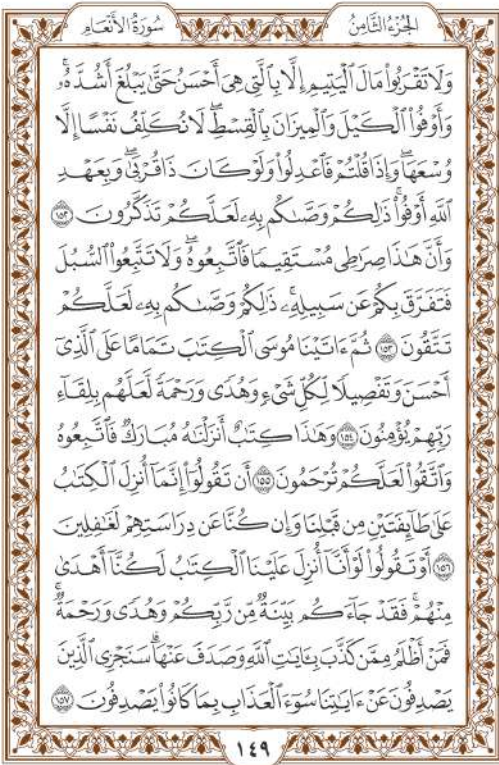 الجُزْءُ الثَّامِنُ سُورَةُ الأَنْعَامِ
وَلَا تَقْرَبُوا۟ مَالَ ٱلْيَتِيمِ إِلَّا بِٱلَّتِى هِىَ أَحْسَنُ حَتَّىٰ يَبْلُغَ أَشُدَّهُۥ
وَأَوْفُوا۟ ٱلْكَيْلَ وَٱلْمِيزَانَ بِٱلْقِسْطِۖ لَا نُكَلِّفُ نَفْسًا إِلَّا
وُسْعَهَاۖ وَإِذَا قُلْتُمْ فَٱعْدِلُوا۟ وَلَوْ كَانَ ذَا قُرْبَىٰۖ وَبِعَهْدِ
ٱللَّهِ أَوْفُوا۟ۚ ذَٰلِكُمْ وَصَّىٰكُم بِهِۦ لَعَلَّكُمْ تَذَكَّرُونَ ١٥٢
وَأَنَّ هَٰذَا صِرَٰطِى مُسْتَقِيمًا فَٱتَّبِعُوهُۖ وَلَا تَتَّبِعُوا۟ ٱلسُّبُلَ
فَتَفَرَّقَ بِكُمْ عَن سَبِيلِهِۦۚ ذَٰلِكُمْ وَصَّىٰكُم بِهِۦ لَعَلَّكُمْ
تَتَّقُونَ ١٥٣ ثُمَّ ءَاتَيْنَا مُوسَى ٱلْكِتَٰبَ تَمَامًا عَلَى ٱلَّذِىٓ
أَحْسَنَ وَتَفْصِيلًا لِّكُلِّ شَىْءٍ وَهُدًى وَرَحْمَةً لَّعَلَّهُم بِلِقَآءِ
رَبِّهِمْ يُؤْمِنُونَ ١٥٤ وَهَٰذَا كِتَٰبٌ أَنزَلْنَٰهُ مُبَارَكٌ فَٱتَّبِعُوهُ
وَٱتَّقُوا۟ لَعَلَّكُمْ تُرْحَمُونَ ١٥٥ أَن تَقُولُوٓا۟ إِنَّمَآ أُنزِلَ ٱلْكِتَٰبُ
عَلَىٰ طَآئِفَتَيْنِ مِن قَبْلِنَا وَإِن كُنَّا عَن دِرَاسَتِهِمْ لَغَٰفِلِينَ
١٥٦ أَوْ تَقُولُوا۟ لَوْ أَنَّآ أُنزِلَ عَلَيْنَا ٱلْكِتَٰبُ لَكُنَّآ أَهْدَىٰ
مِنْهُمْۚ فَقَدْ جَآءَكُم بَيِّنَةٌ مِّن رَّبِّكُمْ وَهُدًى وَرَحْمَةٌۚ
فَمَنْ أَظْلَمُ مِمَّن كَذَّبَ بِـَٔايَٰتِ ٱللَّهِ وَصَدَفَ عَنْهَاۗ سَنَجْزِى ٱلَّذِينَ
يَصْدِفُونَ عَنْ ءَايَٰتِنَا سُوٓءَ ٱلْعَذَابِ بِمَا كَانُوا۟ يَصْدِفُونَ ١٥٧
١٤٩